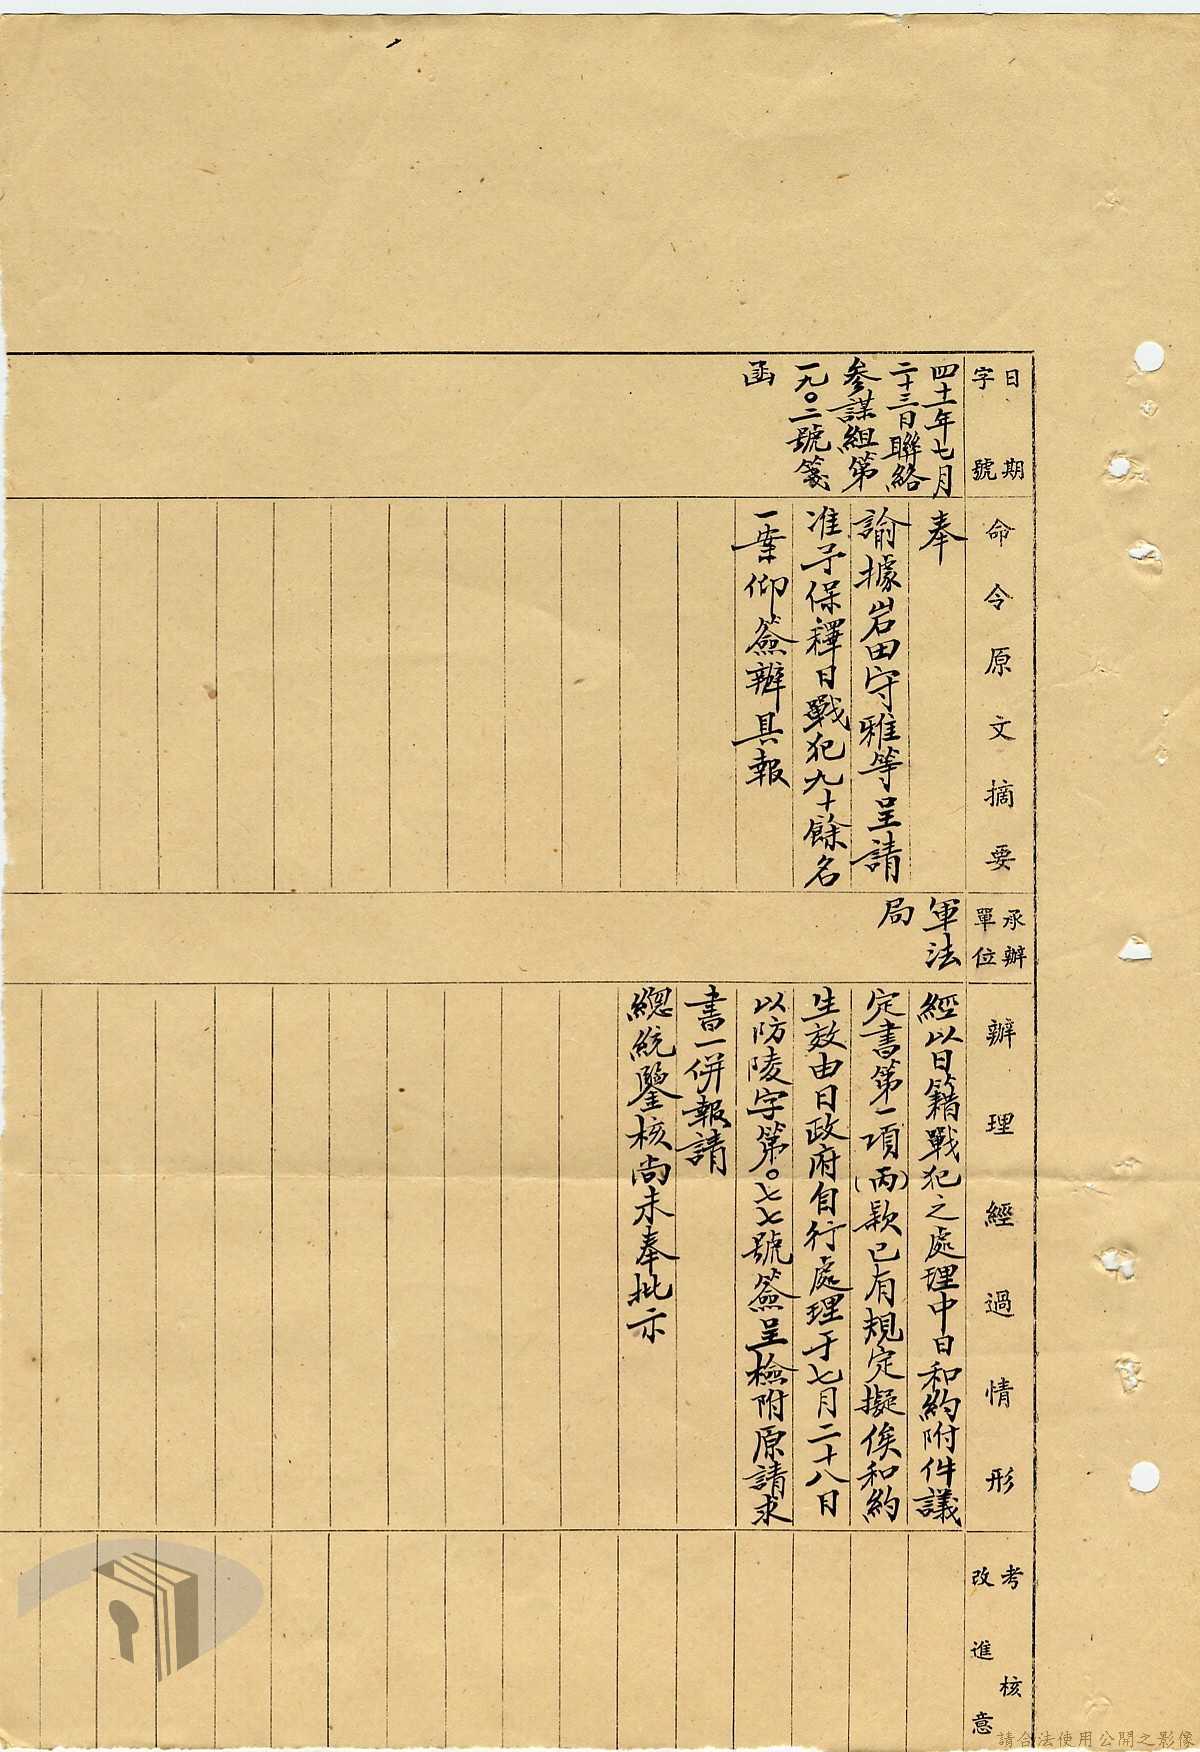 日期
字號
命令原文摘要
承辦
單位
辦理經過情形
考核
改進意
四十一年七月
二十三日聯絡
參謀組第
一九〇二號箋
函
奉
諭據岩田守雅等呈請
准予保釋日戰犯九十餘名
一案仰簽辦具報
軍法
局
經以日籍戰犯之處理中日和約附件議
定書第一項(丙)款已有規定擬俟和約
生效由日政府自行處理于七月二十八日
以防陵字第〇七七號簽呈檢附原請求
書一併報請
總統鑒核尚未奉批示
請合法使用公開之影像